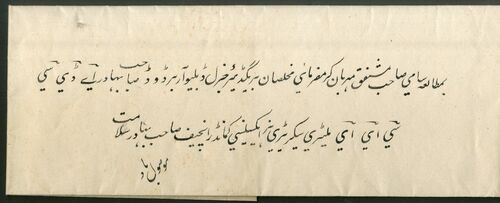 بمطالعه سامی صاحب مشفق مهربان کرمفرمای مخلصان بریگیڈیئر جنرل ڈبلیو آر برڈوڈ صاحب بہادر اے ڈی سی
سی ای آی ملیٹری سیکریٹری ہز اکسیلنسی کمانڈر انچیف صاحب بہادر سلامت
موصول باد